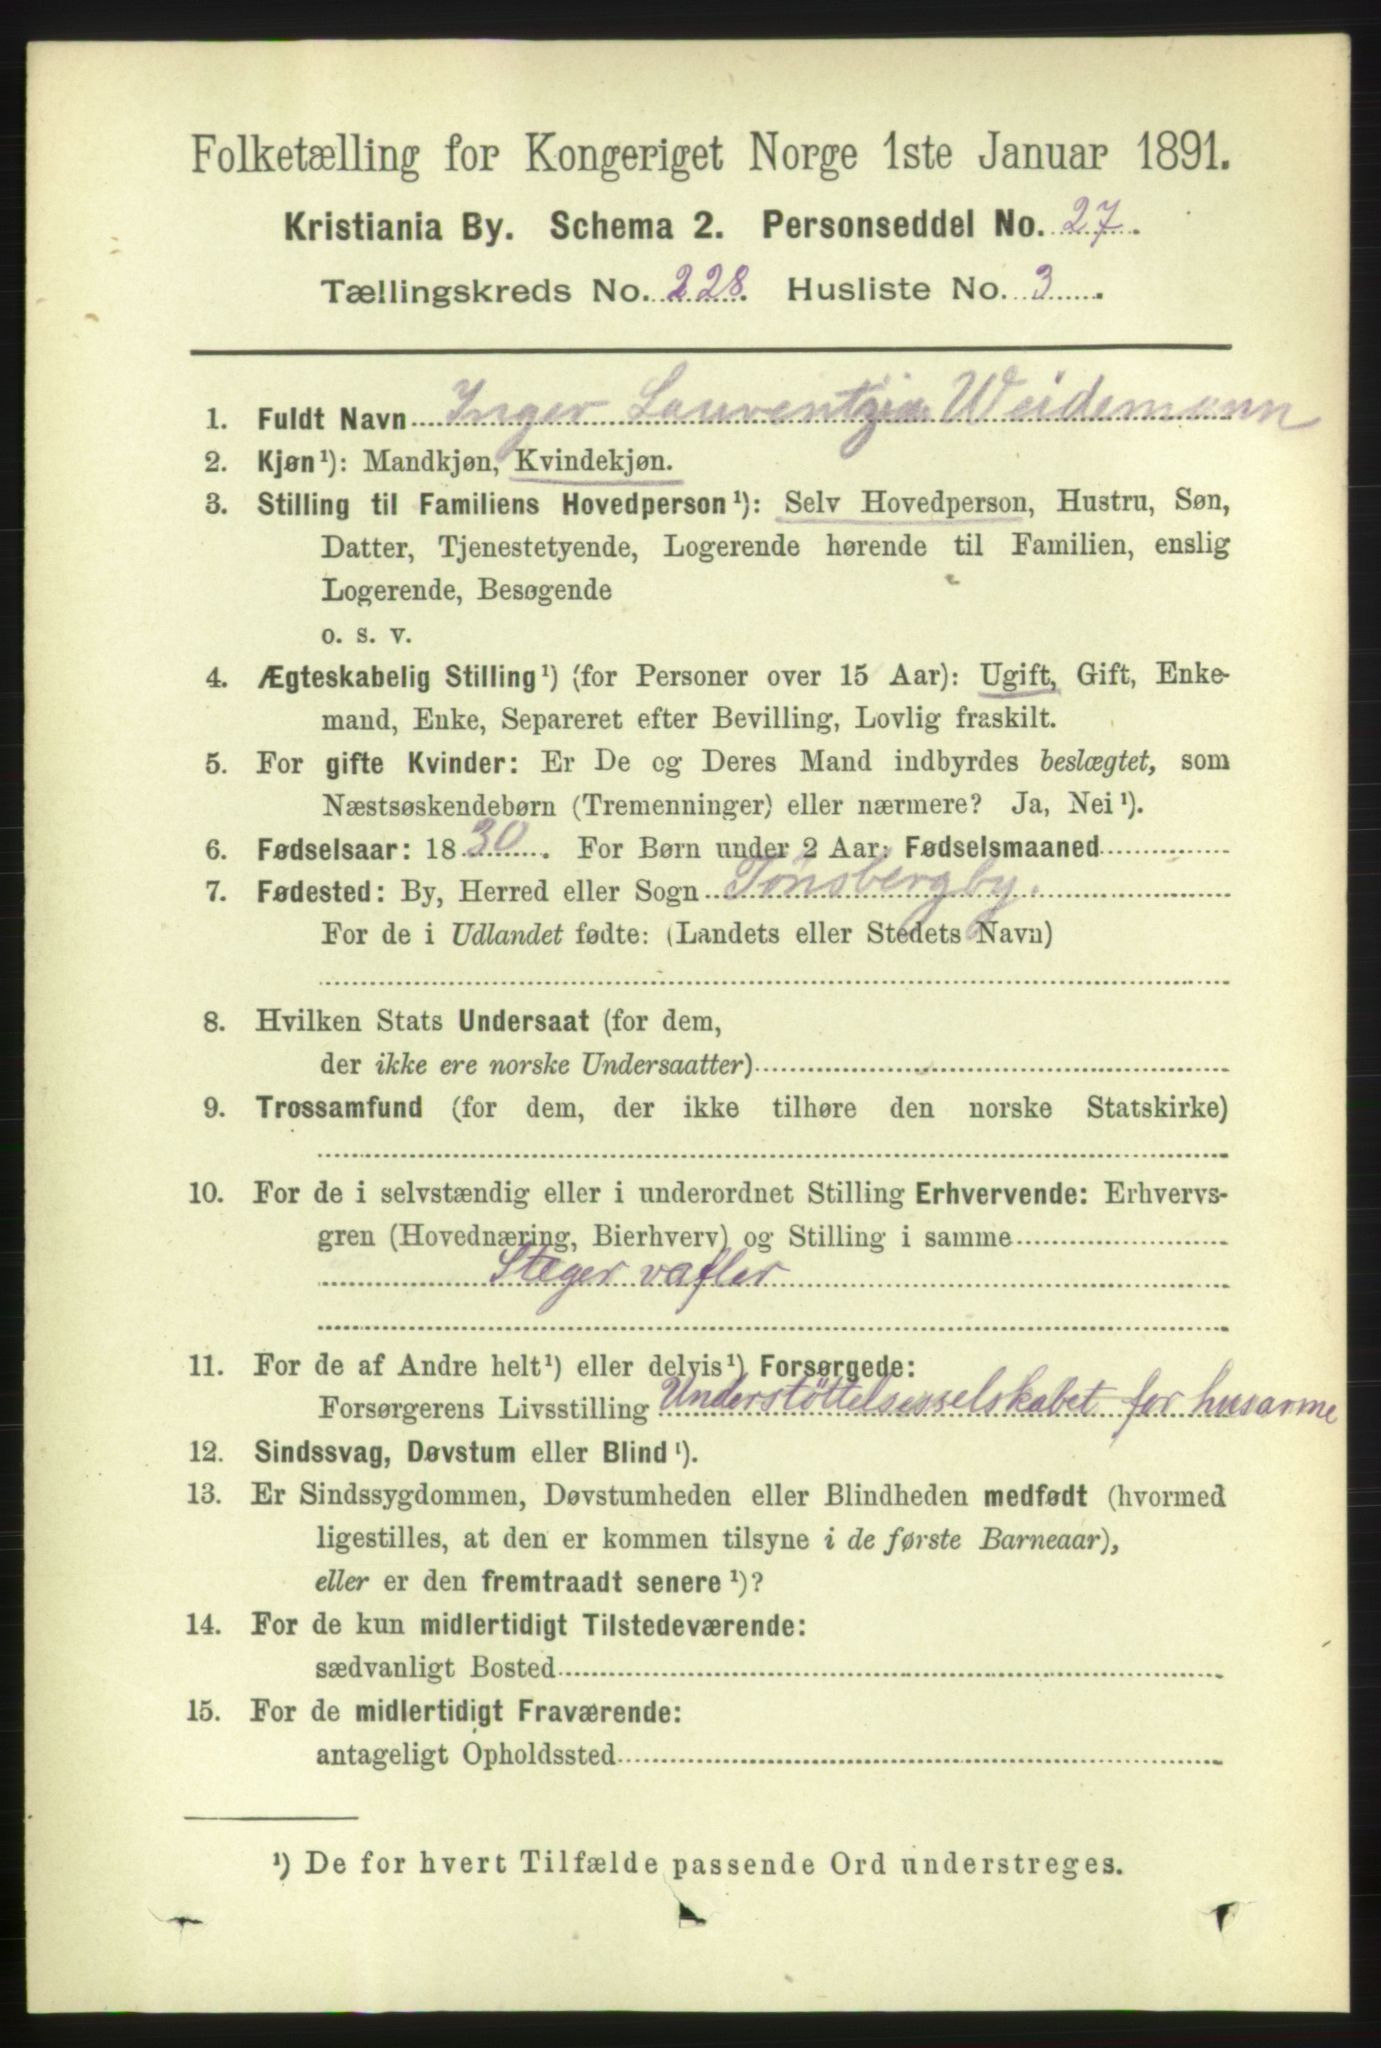 Folketælling for Kongeriget Norge 1ste Januar 1891.
Kristiania By. Schema 2. Personseddel No. 27.
Tællingskreds No. 228. Husliste No. 3.
1. Fuldt Navn Inger Laurentzia Weidemann
2. Kjøn¹): Mandkjøn, Kvindekjøn.
3. Stilling til Familiens Hovedperson¹): Selv Hovedperson, Hustru, Søn,
Datter, Tjenestetyende, Logerende hørende til Familien, enslig
Logerende, Besøgende
o. s. v.
4. Ægteskabelig Stilling¹) (for Personer over 15 Aar): Ugift, Gift, Enke-
mand, Enke, Separeret efter Bevilling, Lovlig fraskilt.
5. For gifte Kvinder: Er De og Deres Mand indbyrdes beslægtet, som
Næstsøskendebørn (Tremenninger) eller nærmere? Ja, Nei¹).
6. Fødselsaar: 1830. For Børn under 2 Aar: Fødselsmaaned
7. Fødested: By, Herred eller Sogn Tønsbergby.
For de i Udlandet fødte: (Landets eller Stedets Navn)
8. Hvilken Stats Undersaat (for dem,
der ikke ere norske Undersaatter)
9. Trossamfund (for dem, der ikke tilhøre den norske Statskirke)
10. For de i selvstændig eller i underordnet Stilling Erhvervende: Erhvervs-
gren (Hovednæring, Bierhverv) og Stilling i samme
Steger vafler
11. For de af Andre helt¹) eller delvis¹) Forsørgede:
Forsørgerens Livsstilling Understöttelsesselskabet for husarme
12. Sindssvag, Døvstum eller Blind¹).
13. Er Sindssygdommen, Døvstumheden eller Blindheden medfødt (hvormed
ligestilles, at den er kommen tilsyne i de første Barneaar),
eller er den fremtraadt senere¹)?
14. For de kun midlertidigt Tilstedeværende:
sædvanligt Bosted
15. For de midlertidigt Fraværende:
antageligt Opholdssted
¹) De for hvert Tilfælde passende Ord understreges.